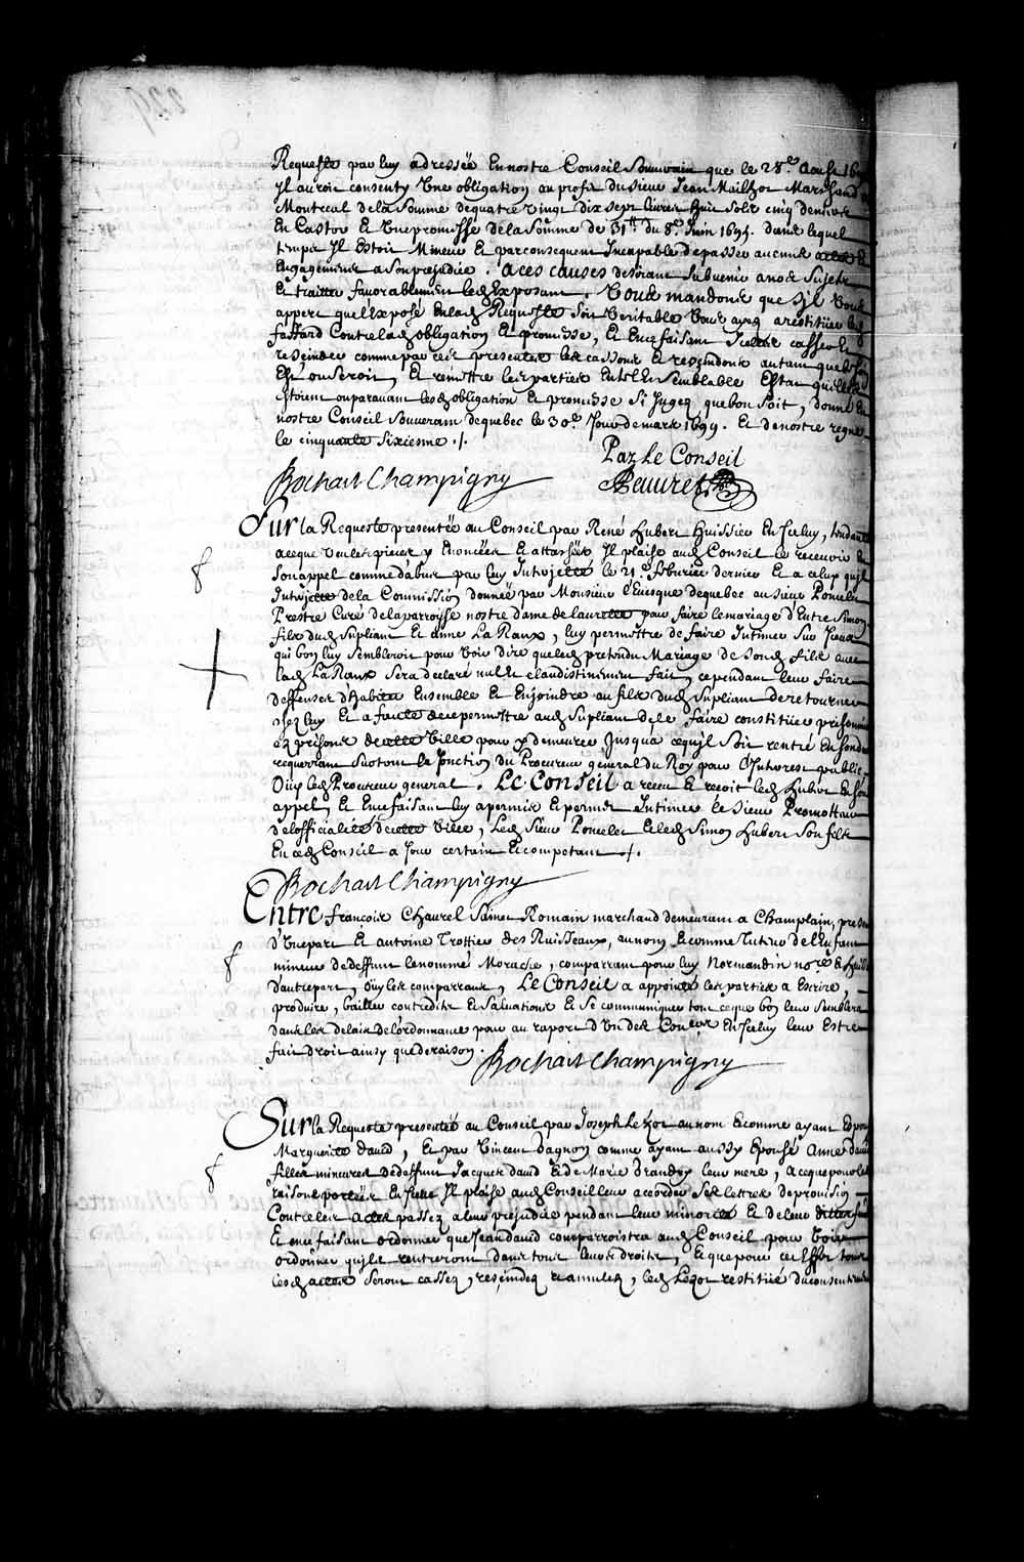 Requeste par luy adressée En nostre Conseil Souverain que le 28.e Aoust
Il auroit consenty Une obligation au profit du sieur Jean Mailhot Marchand
Montreal de la Somme de quatre vingt dix sept livres huit sols cinq deniers
En Castor Et Une promesse de la Somme de 31tt du 8.e Juin 1695. dans lequel
temps Il Estoit Mineur Et par consequent Incapable de passer aucuns actes Et
Engagemens a Son prejudice. a ces causes desirant Subvenir a nos Sujets
Et traitter favorablement led Exposant. Vous mandons que S'jl Vous
appert que l'Exposé En lad Requeste Soit Veritable Vous ayez a restituer led
faffard Contre lad obligation Et promesse, Et Ence faisant Icelles casser Et
rescinder comme par ces presentes les cassons Et rescindons autant que besoin
Est ou seroit, Et remettre les parties En tel Et Semblable Estat qu'elles
Estoient auparavant lesd obligation Et promesse Si Jugez que bon Soit, donné En
nostre Conseil Souverain de quebec le 30.e Jour de mars 1699. Et de nostre regne
le cinquante Sixiesme ./.
Par Le Conseil
Bochart Champigny
Peuvret
Sur la Requeste presentée au Conseil par René hubert huissier En Iceluy, tendante
a ce que Veu les pieces y Enoncées Et attachées Il plaise aud Conseil le recevoir En
Son appel comme d'abus par luy Interjetté le 21.e feburier dernier Et a celuy qu'jl
Interjette de la Commission donnée par Monsieur l'Evesque de quebec au sieur Poncelet
Prestre Curé de la parroisse nostre dame de laurette pour faire le mariage d'Entre Simon
fils dud Supliant Et anne La Raux, luy permettre de faire Intimer Sur Iceux
qui bon luy Sembleroit pour Voir dire que led pretendu Mariage de Sond fils avec
lad La Raux Sera declaré nul Et clandestinement fait, cependant leur faire
deffenses d'habiter Ensemble Et Enjoindre au fils dud Supliant de retourner
chez luy Et a faute de ce permettre aud Supliant de le faire constituer prisonnier
es prisons de cette Ville pour y demeurer Jusqu'a ce qu'jl Soit rentré En Son
requerrant Sur tout la Jonction du Procureur general du Roy pour l'Interest public.
Ouy led Procureur general. Le Conseil a receu Et reçoit led hubert En Son
appel, Et Ence faisant luy a permis Et permet Intimer le Sieur Promotteur
de l'officialité de cette Ville, led Sieur Poncelet Et led Simon hubert Son fils
En ced Conseil a Jour certain Et competant ./.
Bochart Champigny
Entre francois Chaurel Saint Romain marchand demeurant a Champlain, present
d'Une part Et antoine Trottier des Ruisseaux, au nom Et comme Tuteur de l'Enfant
mineur de deffunt le nommé Morache, comparant pour luy Normandin no.re Et huissier
d'autre part, Ouy les comparrans, Le Conseil a appointé les parties a Escrire,
produire, bailler contredits Et Salvations Et Se communiquer tout ce que bon leur Semblera
dans les delais de l'ordonnance pour au raport d'Un des Con.ers En Iceluy leur Estre
fait droit ainsy que de raison.
Bochart Champigny
Sur la Requeste presentée au Conseil par Joseph Lezot au nom Et comme ayant Espousé
Marguerite david, Et par Vincent Dagnon comme ayant aussy Epousé Anne david
filles mineures de deffunt Jacques david Et de Marie Grandry leur mere, a ce que pour les
raisons portées En Icelle Il plaise aud Conseil leur accorder Ses lettres de provision
Contre les actes passez a leur prejudice pendant leur minorité Et de leur
Et ence faisant ordonner que Jean david comparroistra aud Conseil pour Voir
ordonner qu'jls rentreront dans tous leurs droits, Et que pour cet Effet tous
lesd actes Seront cassez, rescindez Et annulez, led Lezot restitué du consentement